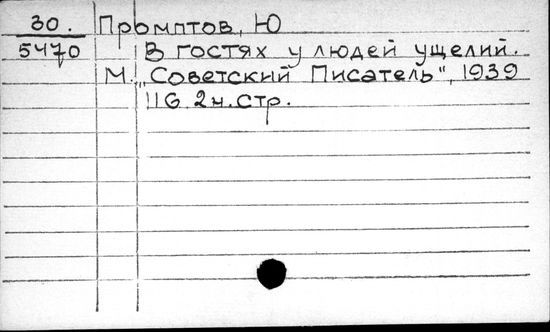 30. Промптов, Ю
5470 В гостях у людей ущелий.
М. „Советский Писатель", 1939
116. 2н. стр.